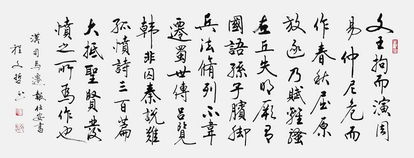 文王拘而演周
易仲尼危而
作春秋屈原
放逐乃賦離騷
左丘失明厥有
國語孫子臏腳
兵法脩列不韋
遷蜀世傳呂覽
韓非囚秦說難
孤憤詩三百篇
大抵聖賢發
憤之所為作也
漢司馬遷報任安書